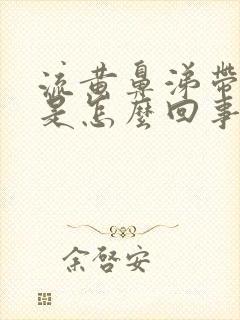 流黄鼻涕带
是怎麼回事
余啓安